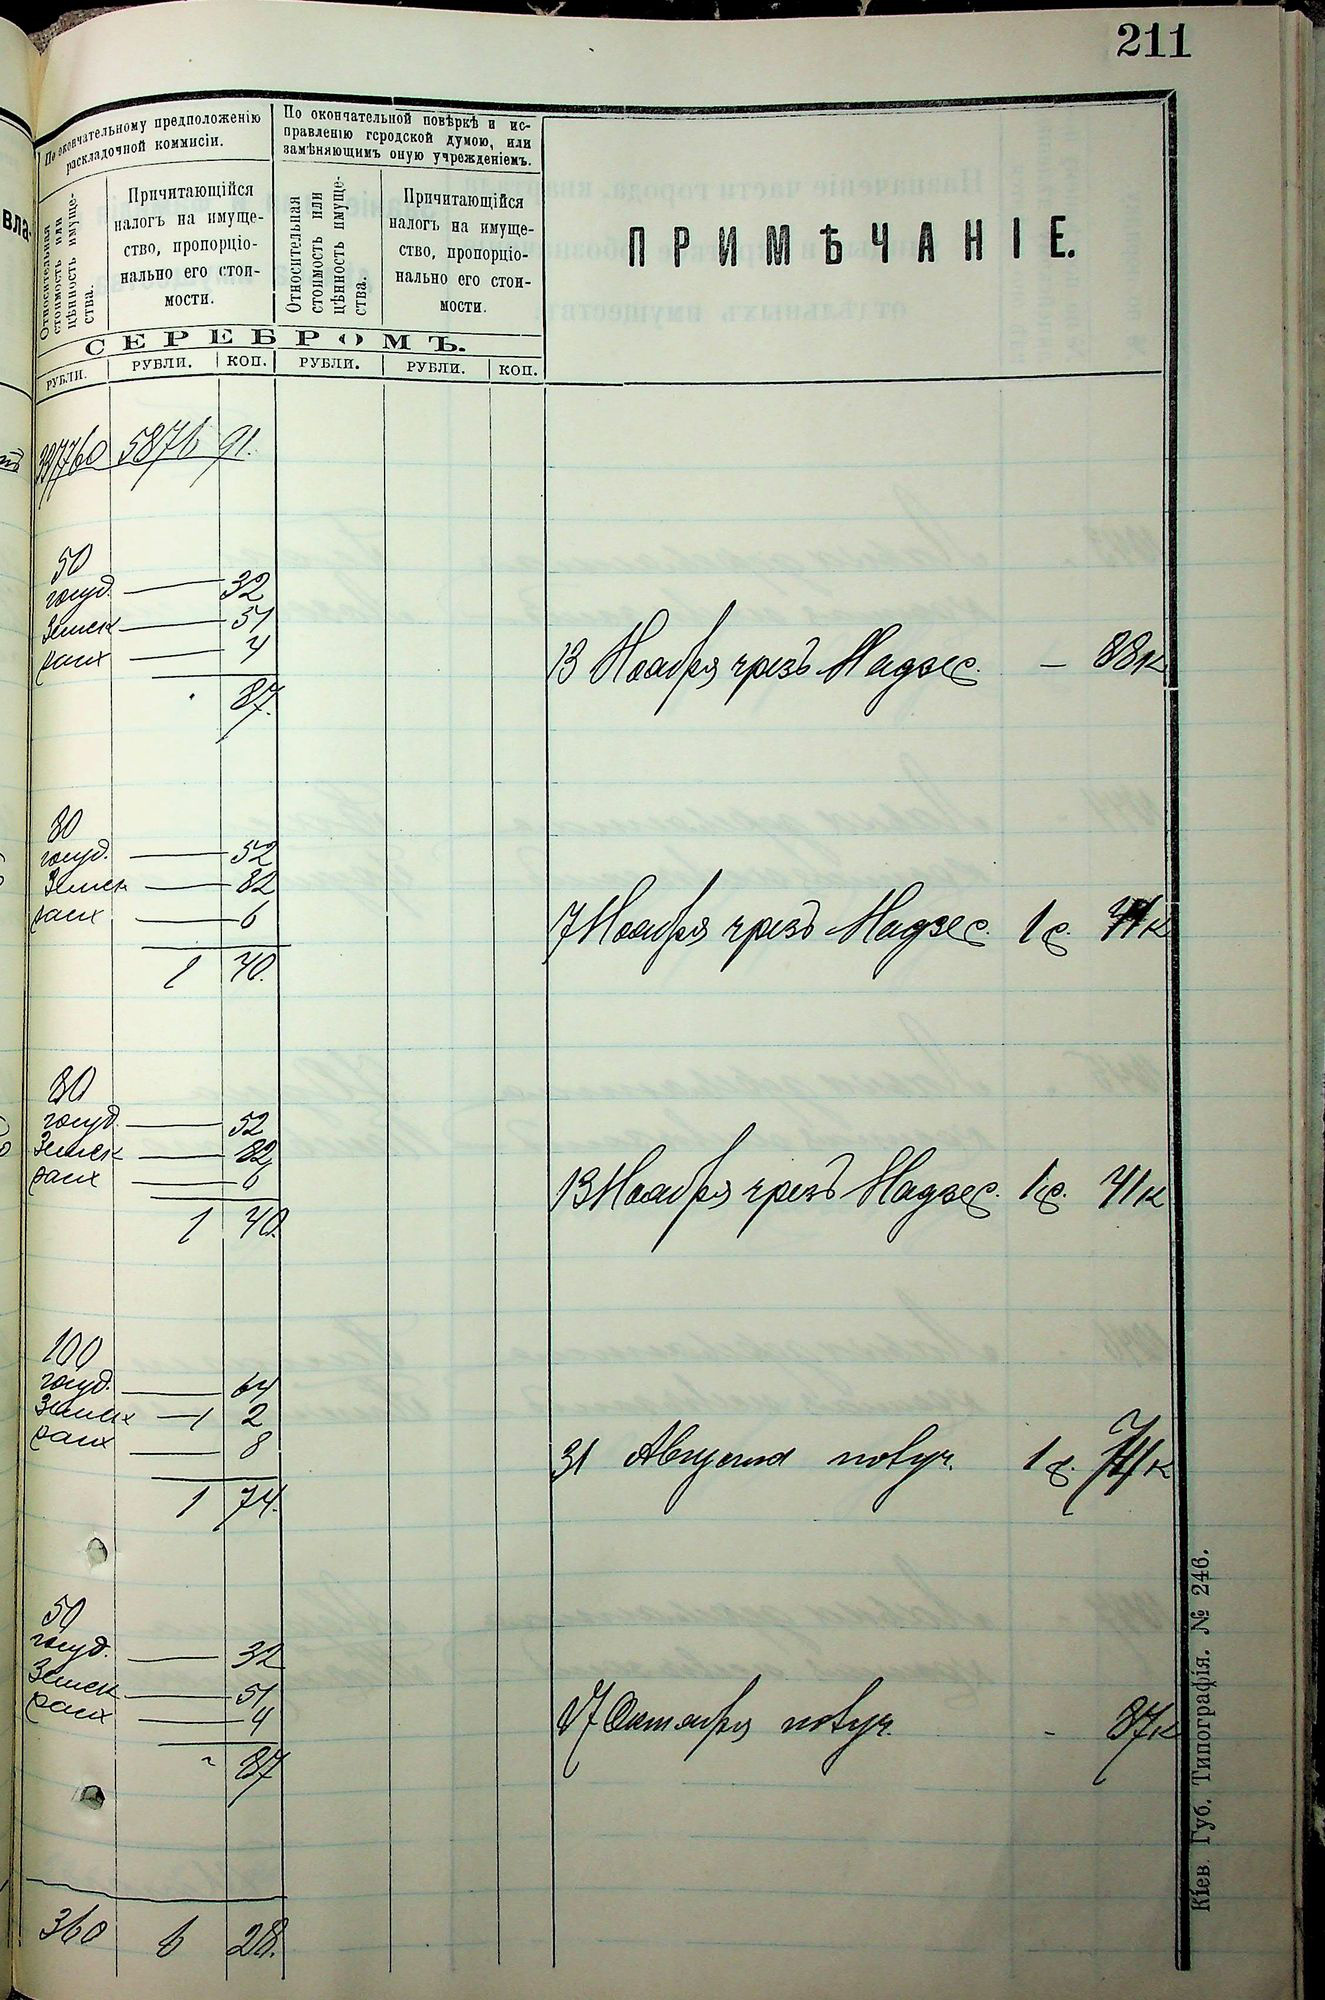 211
По окончательному предположенію
раскладочной коммисіи.
По окончательной повѣркѣ и ис-
правленію городской думою, или
замѣняющимъ оную учрежденіемъ.
Относительная
стоимость или
цѣнность имуще-
ства.
Причитающійся
налогъ на имуще-
ство, пропорціо-
нально его стои-
мости.
Относительная
стоимость или
цѣнность имуще-
ства.
Причитающійся
налогъ на имуще-
ство, пропорціо-
нально его стои-
мости.
ПРИМѢЧАНІЕ.
СЕРЕБРОМЪ.
РУБЛИ. РУБЛИ. КОП. РУБЛИ. РУБЛИ. КОП.
397760 5876 91.
50
госуд. — 32
Земск — 51
расх — 4
87.
13 Ноября чрезъ Надзес. — 88к
80
госуд. — 52
Земск — 82
расх — 6
1 40.
7 Ноября чрезъ Надзес. 1 р. 41к
80
госуд. — 52
Земск — 82
расх — 6
1 40.
13 Ноября чрезъ Надзес. 1 р. 41к
100
госуд. — 64
Земск — 1 2
расх — 8
1 74.
31 Августа 1 р. 74к
50
госуд. — 32
Земск — 51
расх — 4
87
17 Октября - 87к
360 6 28.
Кіев. Губ. Типографія. № 246.